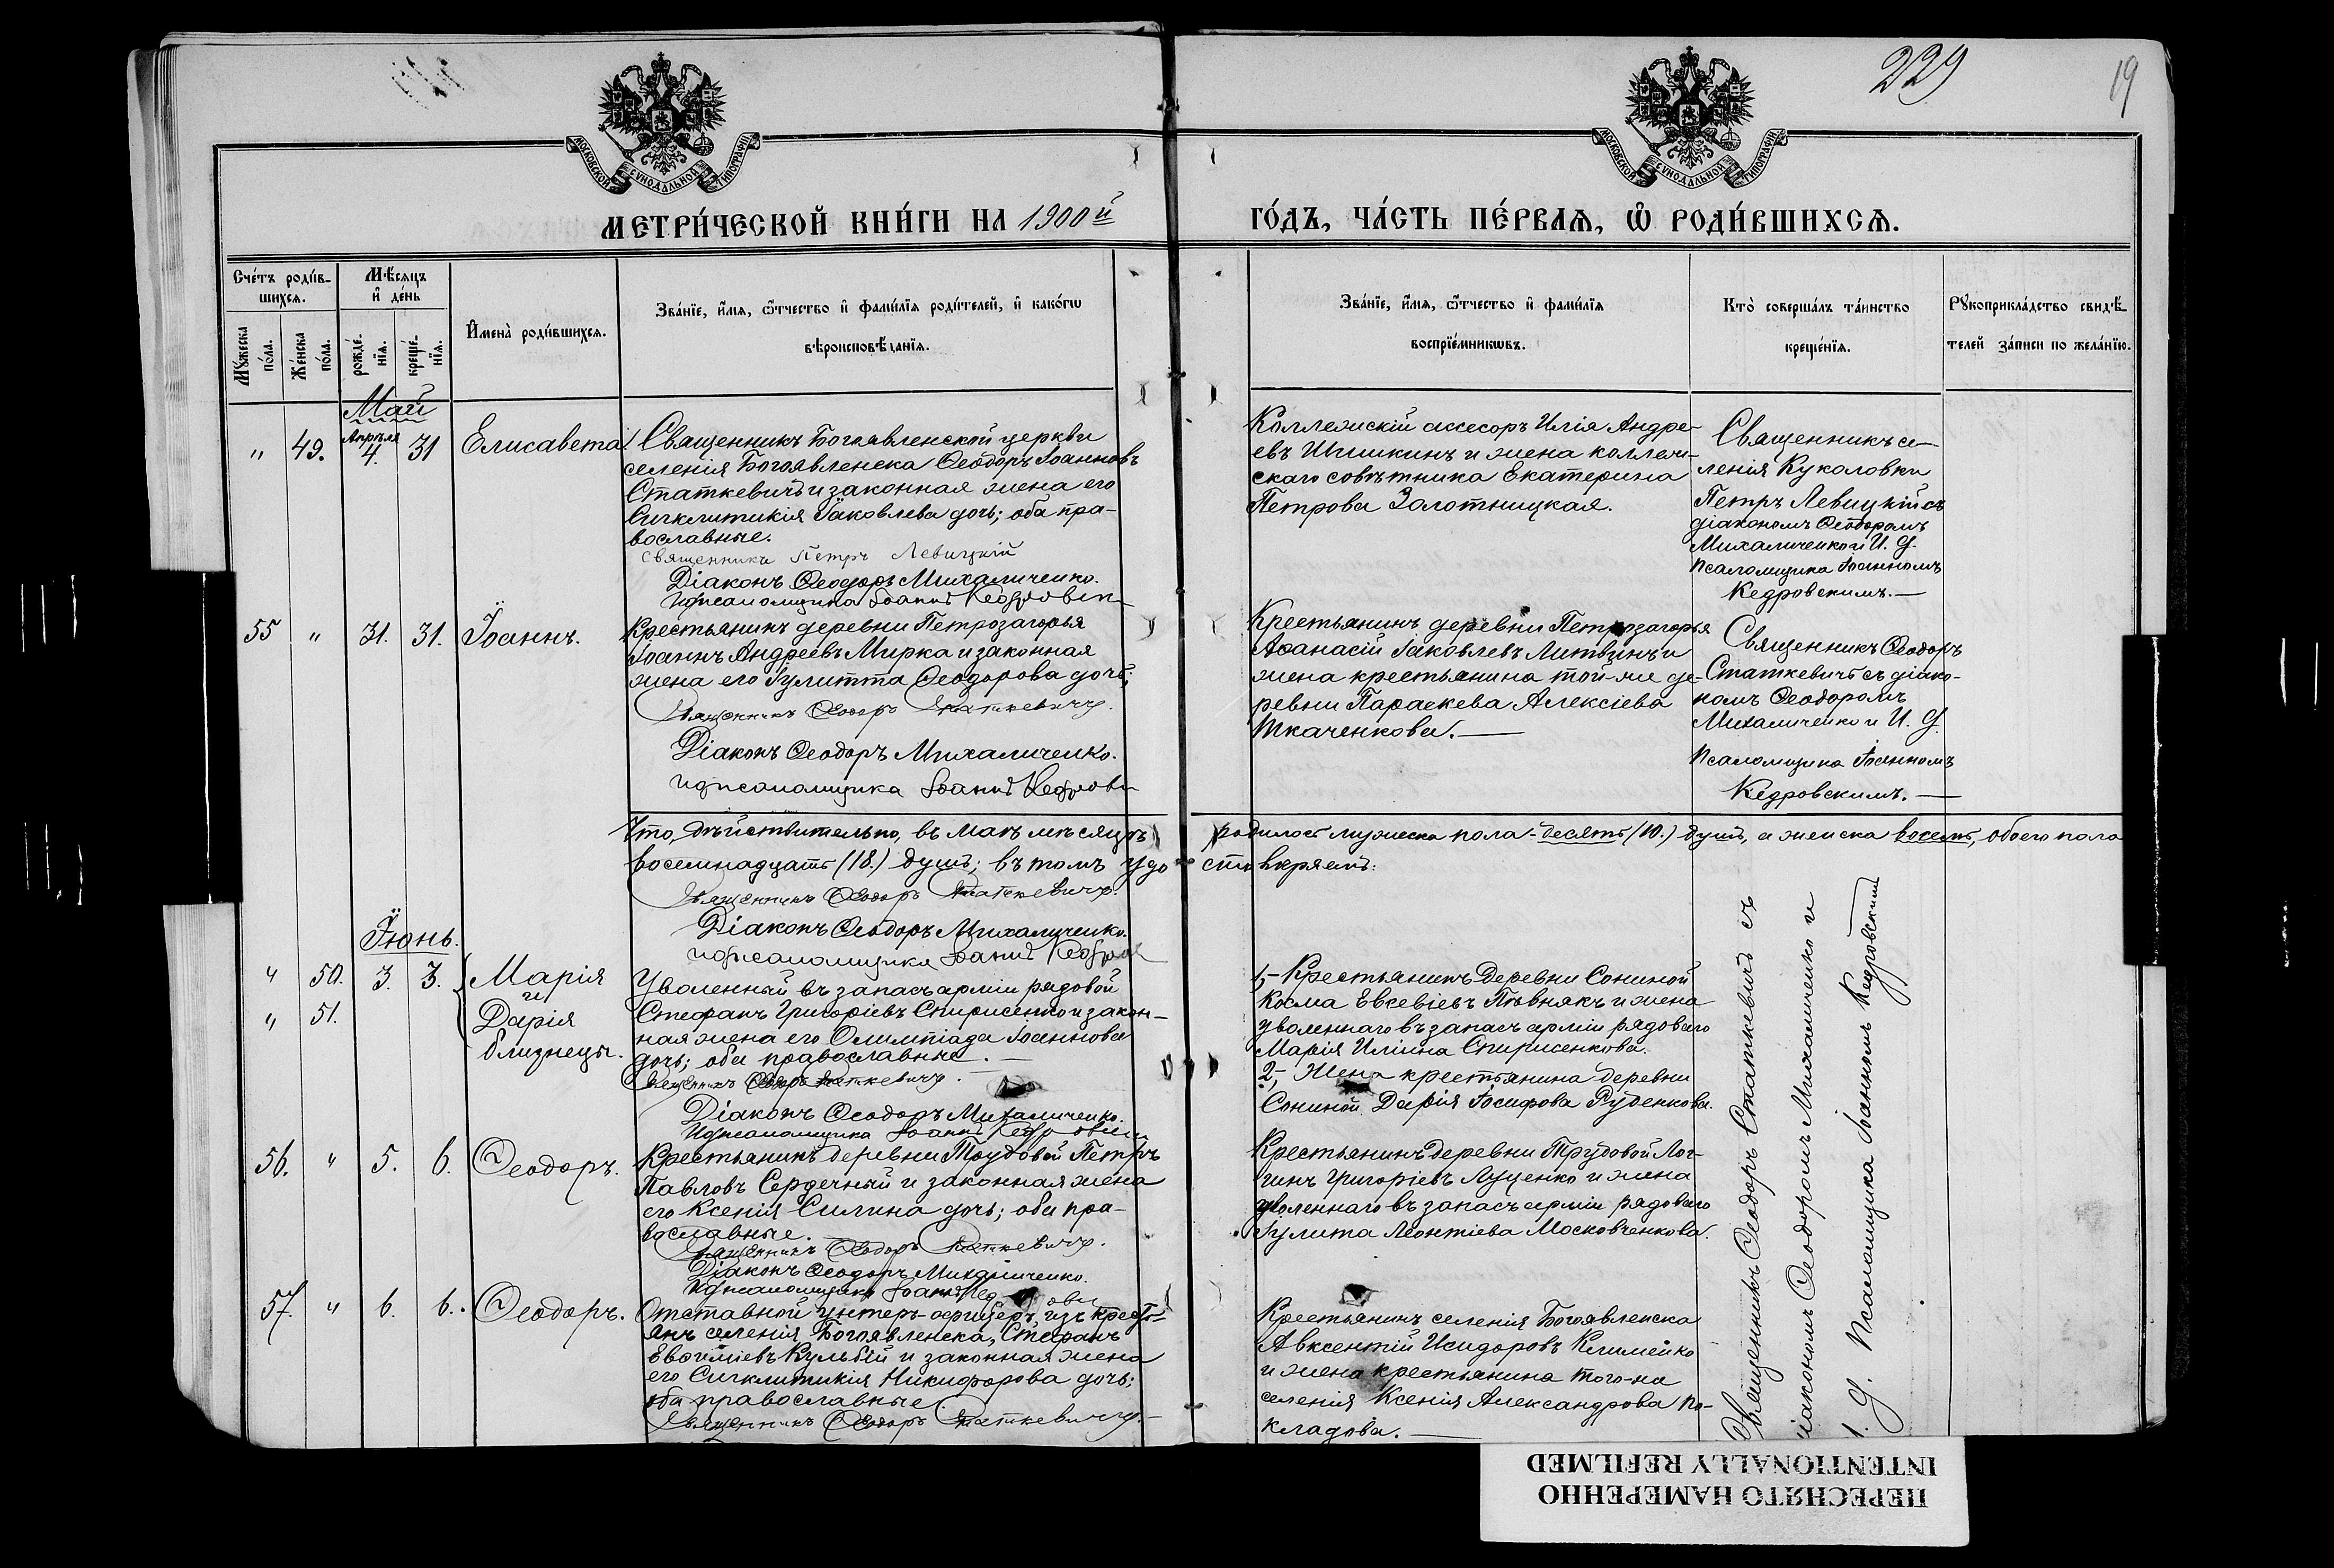 229
19
МОСКОВСКОЙ СѴНОДАЛЬНОЙ ТИПОГРАФІИ
МОСКОВСКОЙ СѴНОДАЛЬНОЙ ТИПОГРАФІИ
МЕТРИ́ЧЕСКОЙ КНИ́ГИ НА 1900й
ГО́ДЪ, ЧА́СТЬ ПЕ́РВАѦ, Ѽ РОДИ́ВШИХСѦ.
Сче́тъ роди́в-
шихсѧ.
Мѣ́сѧцъ
и҆ де́нь
Мꙋ́жеска
по́ла.
Же́нска
по́ла.
рожде́-
нїѧ.
креще́-
нїѧ.
И҆мена̀ роди́вшихсѧ.
Зва́нїе, и҆́мѧ, ѻ҆́тчество и҆ фами́лїѧ роди́телей, и҆ како́гѡ
вѣроисповѣ́данїѧ.
Зва́нїе, и҆́мѧ, ѻ҆́тчество и҆ фами́лїѧ
воспрїе́мникѡвъ.
Кто̀ соверша́лъ та́инство
креще́нїѧ.
Рꙋкоприкла́дство свидѣ́-
телей за́писи по жела́нїю.
Май
" 49. Апрѣля 4. 31 Елисавета.
Священникъ Богоявленской церкви
селенія Богоявленска Ѳеодоръ Іоанновъ
Статкевичъ и законная жена его
Сигклитикія Іаковлева дочь; оба пра-
вославные.
Священникъ Петръ Левицкій
Діаконъ Ѳеодоръ Михаличенко.
И д псаломщика Іоаннъ Кедровскі
Коллежскій ассесоръ Илія Андре-
евъ Шишкинъ и жена коллеж-
скаго совѣтника Екатерина
Петрова Золотницкая.
Священникъ се-
ленія Кукаловки
Петръ Левицкій съ
діакономъ Ѳеодоромъ
Михаличенко и И. д.
псаломщика Іоанномъ
Кедровскимъ.—
55 " 31. 31. Іоаннъ.
Крестьянинъ деревни Петрозагорья
Іоаннъ Андреевъ Мирка и законная
жена его Іулитта Ѳеодорова дочь;
Священникъ Ѳеодоръ Статкевичъ.
Діаконъ Ѳеодоръ Михаличенко.
И д псаломщика Іоаннъ Кедровск
Крестьянинъ деревни Петрозагорья
Аѳанасій Іаковлевъ Литвинъ и
жена крестьянина той-же де-
ревни Параскева Алексіева
Ткаченкова.—
Священникъ Ѳеодоръ
Статкевичъ съ діако-
номъ Ѳеодоромъ
Михаличенко и И. д.
псаломщика Іоанномъ
Кедровскимъ.—
Что дѣйствительно, въ маѣ мѣсяцѣ родилось мужеска пола - десять (10.) душъ, а женска восемь, обоего пола
восемнадцать (18.) душъ; въ томъ удо стовѣряемъ:
Священникъ Ѳеодоръ Статкевичъ.
Діаконъ Ѳеодоръ Михаличенко.
И д псаломщика Іоаннъ Кедровск
Іюнь.
" 50. 3. 3. Марія
и
" 51. Дарія
близнецы.
Уволенный въ запасъ арміи рядовой
Стефанъ Григоріевъ Спирисенко и закон-
ная жена его Олимпіада Іоаннова
дочь; оба православные.—
Священникъ Ѳеодоръ Статкевичъ.
Діаконъ Ѳеодоръ Михаличенко.
И д псаломщика Іоаннъ Кедровскі
1,- Крестьянинъ деревни Сониной
Косма Евсевіевъ Пивнякъ и жена
уволеннаго въ запасъ арміи рядоваго
Марія Иліина Спирисенкова.
2,- Жена крестьянина деревни
Сониной Дарія Іосифова Руденкова.
56. " 5. 6. Ѳеодоръ.
Крестьянинъ деревни Трудовой Петръ
Павловъ Сердечный и законная жена
его Ксенія Силина дочь; оба пра-
вославные.
Священникъ Ѳеодоръ Статкевичъ.
Діаконъ Ѳеодоръ Михаличенко.
И д псаломщика Іоаннъ Кедровск
Крестьянинъ деревни Трудовой Лог-
гинъ Григоріевъ Луценко и жена
уволеннаго въ запасъ арміи рядоваго
Іулита Леонтіева Московченкова.
57. " 6. 6. Ѳеодоръ.
Отставной унтеръ-офицеръ, изъ кресть-
янъ селенія Богоявленска, Стефанъ
Евѳиміевъ Кульбій и законная жена
его Сигклитикія Никифорова дочь;
оба православные.
Священникъ Ѳеодоръ Статкевичъ.
Крестьянинъ селенія Богоявленска
Авксентій Исидоровъ Клименко
и жена крестьянина того-же
селенія Ксенія Александрова По-
кладова.—
Священникъ Ѳеодоръ Статкевичъ съ
діакономъ Ѳеодоромъ Михаличенко и
И. д. псаломщика Іоанномъ Кедровскимъ
ПЕРЕСНЯТО НАМЕРЕННО
INTENTIONALLY REFILMED